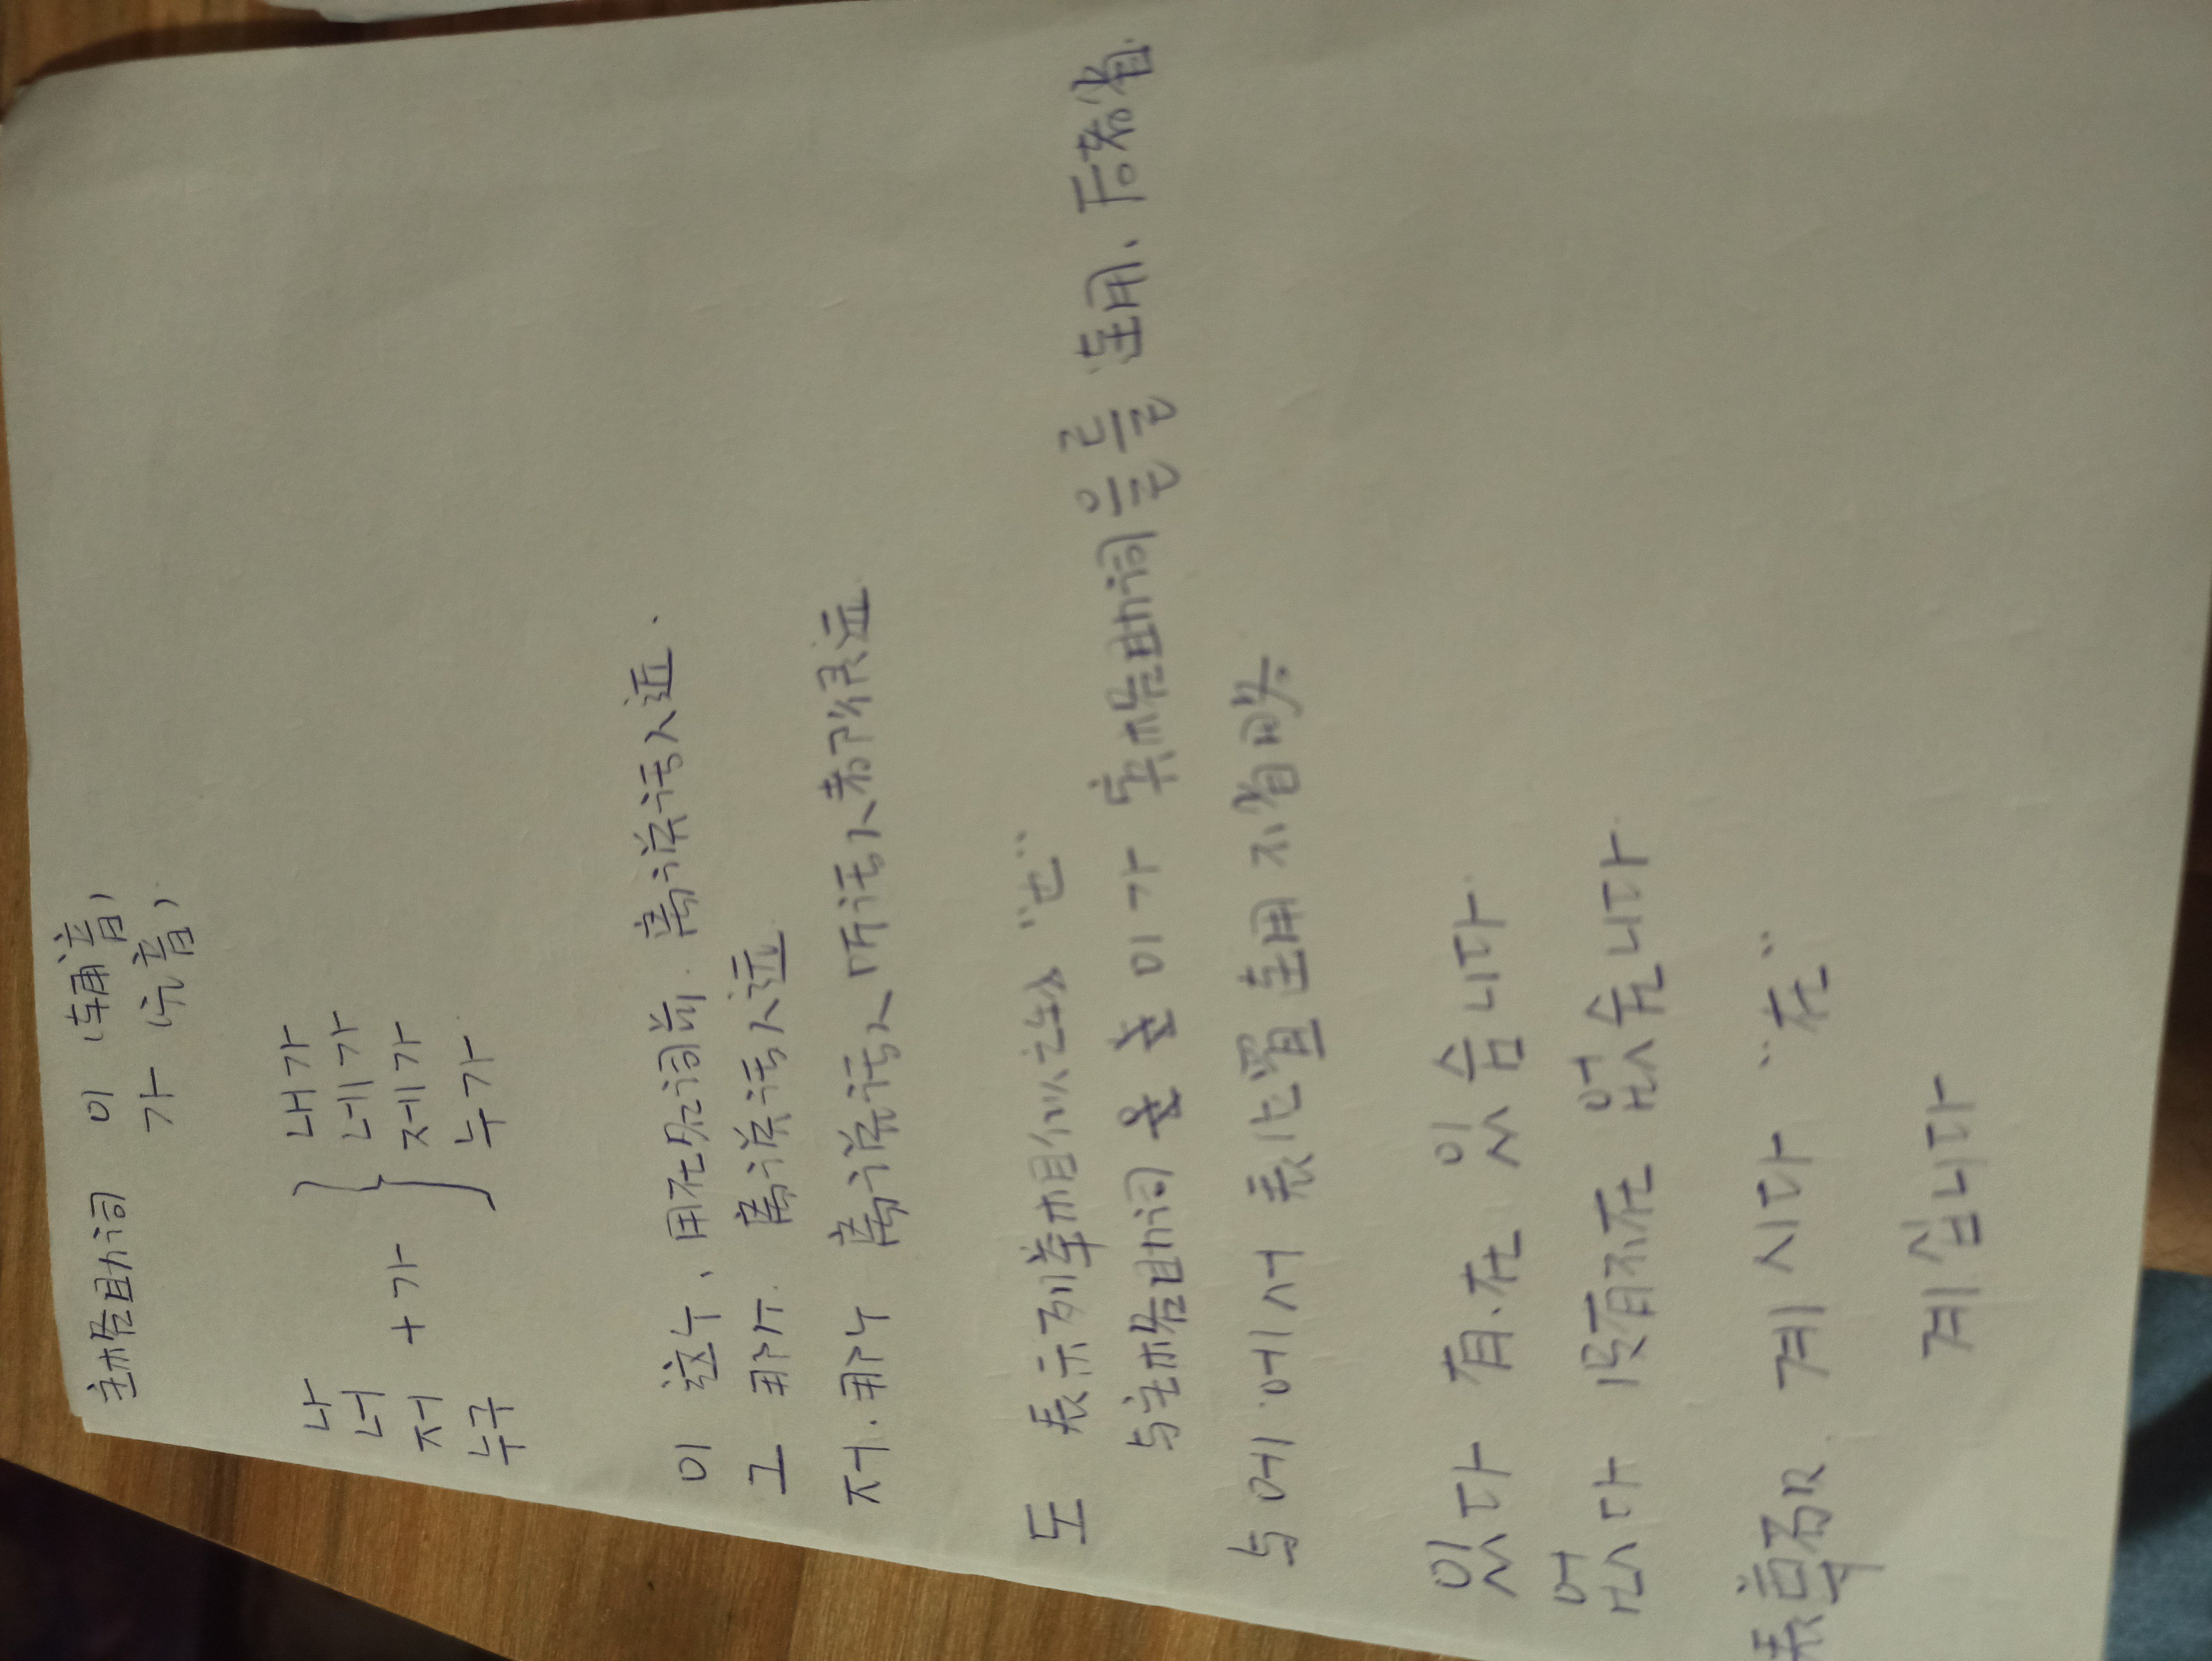 主格助词 이 (辅音)
가 (元音)
나 내가
너 네가
저 +가 제가
누구 누가
이 这个、用在名词前. 离说话人近.
그 那个. 离说话人远
저. 那个 离说话人听话人都很远
도 表示列举相似之物 "也"
与主格助词 이 가 宾格助词 을 를 连用、后者省
与 에 에서 表位置 连用 不省略
있다 有.在 있습니다
없다 没有不在 없습니다
表尊敬. 계시다 "在"
계십니다